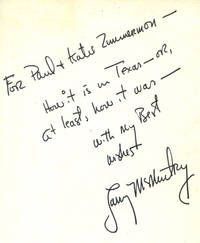 For Paul & Katie Zimmerman —
How it is in Texas — or,
at least, how it was —
with my Best
wishes
Larry McMurtry